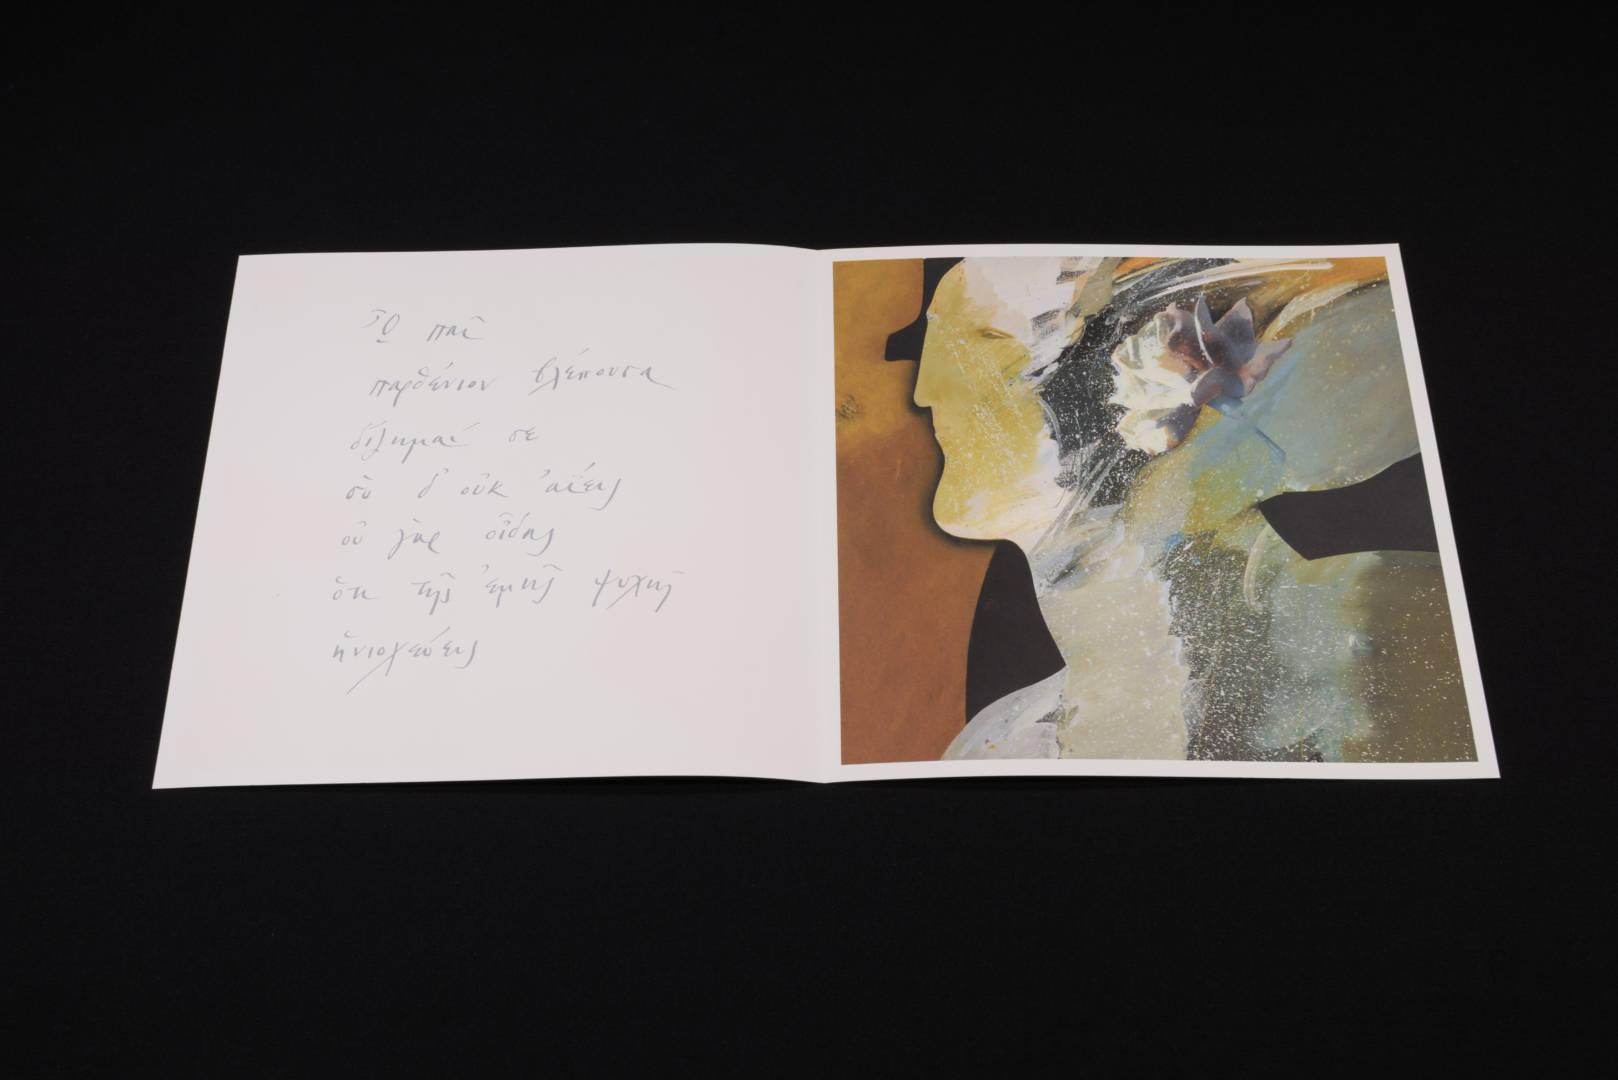 Ὦ παῖ
παρθένιον βλέπουσα
δίζημαί σε
σὺ δ' οὐκ ἀίεις
οὐ γὰρ οἶδης
ὅτι τῆς ἐμῆς ψυχῆς
ἡνιοχεύεις